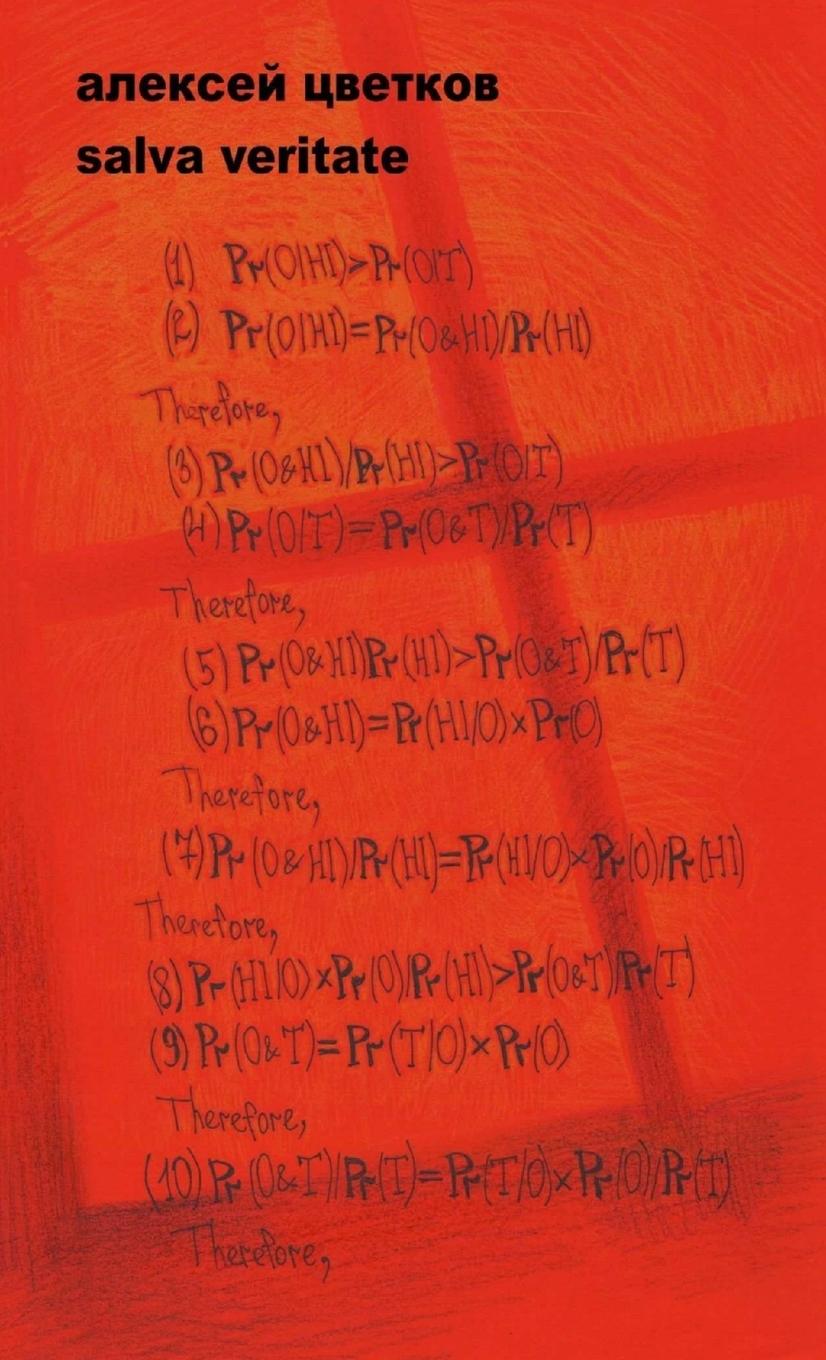 алексей цветков
salva veritate
(1) Pr(O|HI)>Pr(O|T)
(2) Pr(O|HI)=Pr(O&HI)/Pr(HI)
Therefore,
(3) Pr(O&HI)/Pr(HI)>Pr(O|T)
(4) Pr(O|T)=Pr(O&T)/Pr(T)
Therefore,
(5) Pr(O&HI)Pr(HI)>Pr(O&T)/Pr(T)
(6) Pr(O&HI)=Pr(HI/O)×Pr(O)
Therefore,
(7) Pr(O&HI)/Pr(HI)=Pr(HI/O)×Pr(O)/Pr(HI)
Therefore,
(8) Pr(HI/O)×Pr(O)/Pr(HI)>Pr(O&T)/Pr(T)
(9) Pr(O&T)=Pr(T/O)×Pr(O)
Therefore,
(10) Pr(O&T)/Pr(T)=Pr(T/O)×Pr(O)/Pr(T)
Therefore,